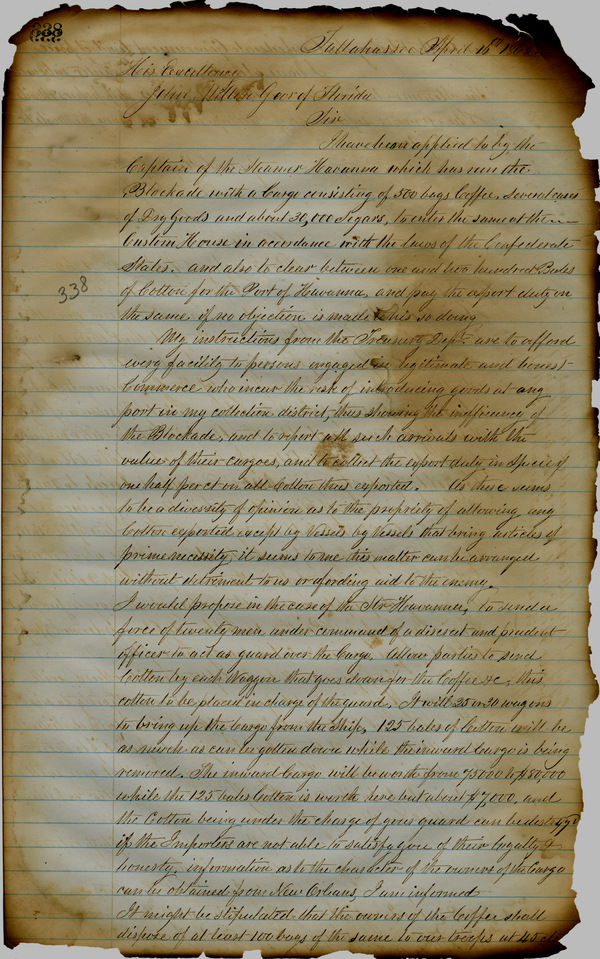 338
Tallahassee April 16th
His Excellency
John Milton Gov of Florida
Sir
I have been applied to by the
Captain of the Steamer Havanna which has run the
Blockade with a Cargo consisting of 500 bags Coffee, Several cases
of Dry Goods and about 30,000 Segars, to enter the same at the
Custom House in accordance with the laws of the Confederate
States, and also to clear between one and two hundred Bales
of Cotton for the Port of Havanna, and pay the export duty on
the same, if no objection is made to his so doing
338
My instructions from the Treasury Dept are to afford
every facility to persons engaged in legitimate and honest
Commerce who incur the risk of introducing goods at any
port in my collection district, thus showing the inefficiency of
the Blockade, and to report all such arrivals with the
value of their cargoes, and to collect the export duty in Specie of
one half per ct on all Cotton thus exported. As there seems
to be a diversity of opinion as to the propriety of allowing any
Cotton exported except by Vessels by Vessels that bring articles of
prime necessity, it seems to me this matter can be arranged
without detriment to us or affording aid to the enemy.
I would propose in the case of the Str Havanna, to send a
force of twenty men under command of a discreet and prudent
officer to act as guard over the Cargo, allow parties to send
Cotton by each Waggon that goes down for the Coffee &c, this
cotton to be placed in charge of the guard. It will 25 or 30 wagons
to bring up the Cargo from the Ship, 125 bales of Cotton will be
as much as can be gotten down while the inward Cargo is being
removed. The inward Cargo will be worth from 75000 to $80,000
while the 125 bales Cotton is worth here but about $7,000, and
the Cotton being under the charge of your guard can be destroy'd
if the Importers are not able to satisfy you of their loyalty &
honesty, information as to the character of the owners of the Cargo
can be obtained from New Orleans, I am informed
It might be stipulated that the owners of the Coffee shall
dispose of at least 100 bags of the same to our troops at 45